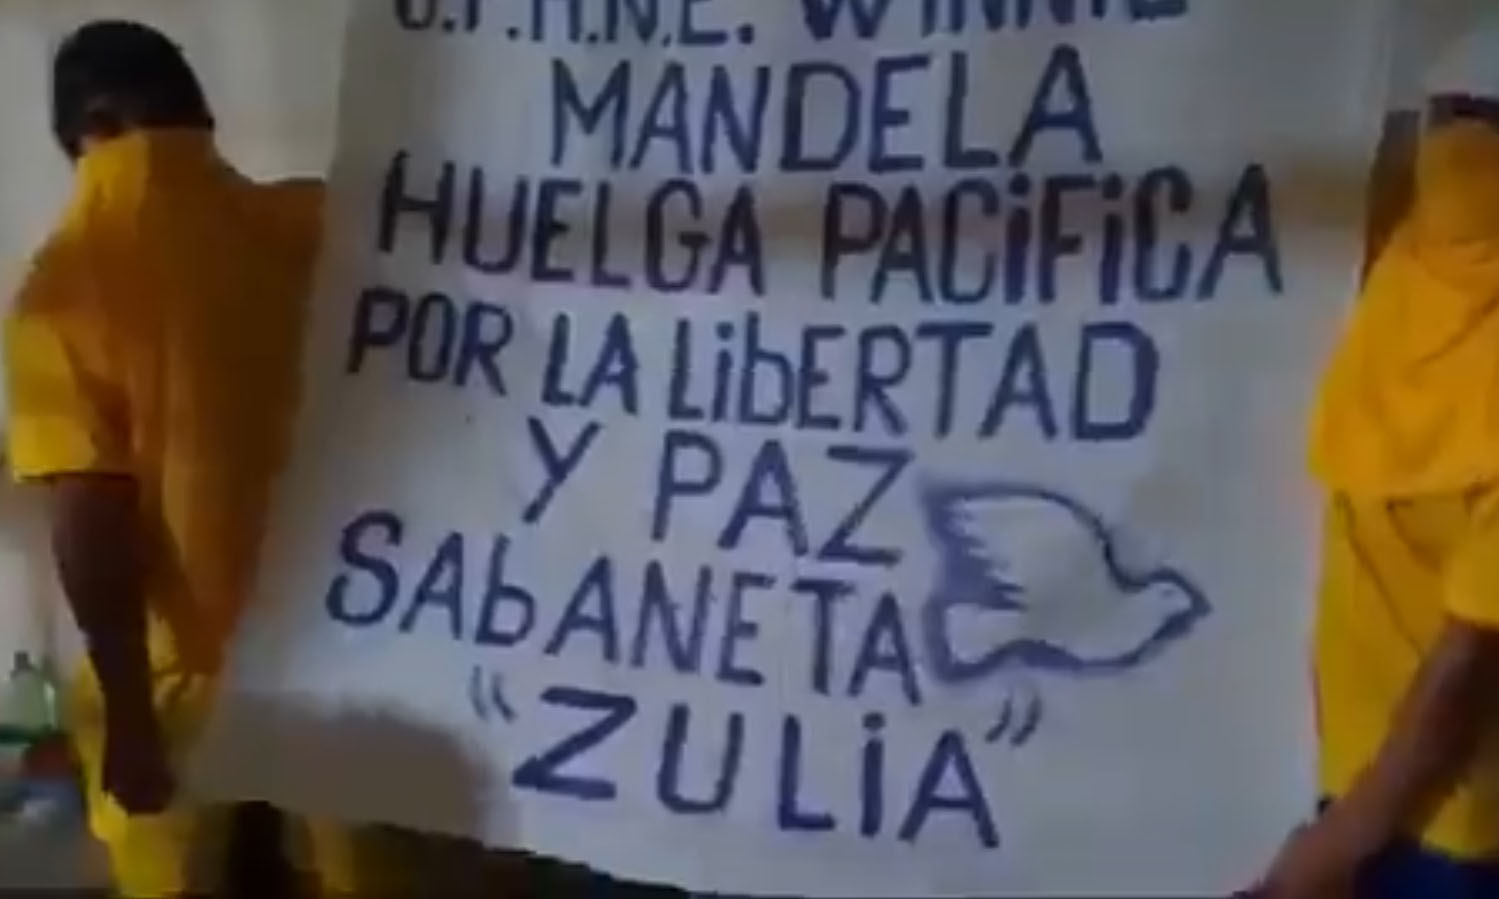 WINNIE
MANDELA
HUELGA PACiFiCA
POR LA LibERTAD
Y PAZ
SAbANETA
"ZULiA"